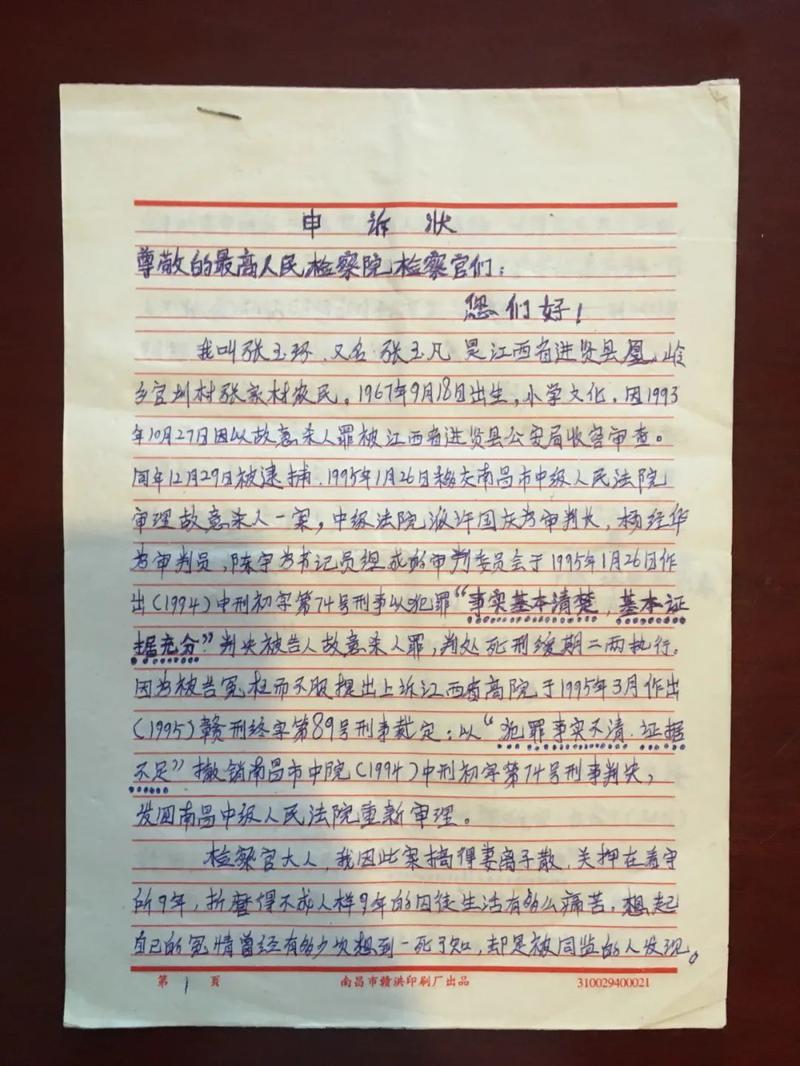 申诉状
尊敬的最高人民检察院检察官们：
您们好！
我叫张玉环、又名张玉凡是江西省进贤县凰岭
乡官圳村张家村农民，1967年9月18日出生，小学文化，因1993
年10月27日因以故意杀人罪被江西省进贤县公安局收容审查。
同年12月29日被逮捕，1995年1月26日移交南昌市中级人民法院
审理故意杀人一案，中级法院派许国庆为审判长，杨经华
为审判员，陈宇为书记员组成的审判委员会于1995年1月26日作
出(1994)中刑初字第74号刑事以犯罪“事实基本清楚，基本证
据充分”判决被告人故意杀人罪，判处死刑缓期二两执行。
因为被告冤枉而不服提出上诉江西省高院于1995年3月作出
(1995)赣刑终字第89号刑事裁定：以“犯罪事实不清，证据
不足”撤销南昌市中院(1994)中刑初字第74号刑事判决，
发回南昌中级人民法院重新审理。
检察官大人，我因此案搞得妻离子散，关押在看守
所9年，折磨得不成人样9年的囚徒生活有多么痛苦。想起
自己的冤情曾经有多少次想到一死了知，却是被同监的人发现。
第1页 南昌市赣洪印刷厂出品 310029400021